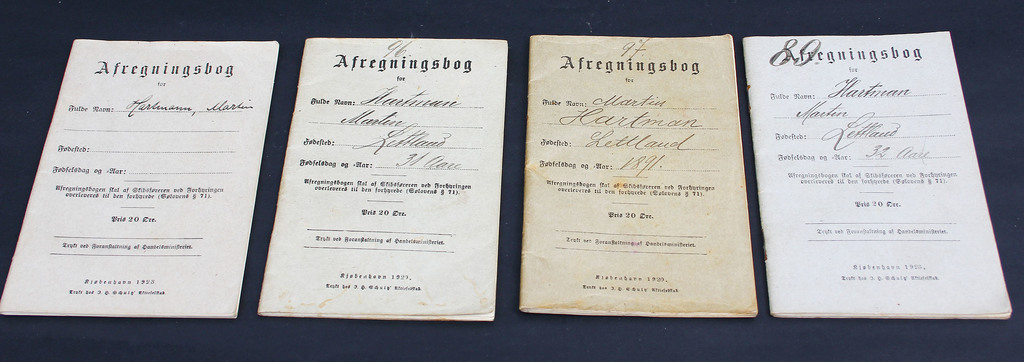 Afregningsbog
for
Fulde Navn: Hartmann, Martin
Fødested:
Fødselsdag og -Aar:
Afregningsbogen skal af Skibsføreren ved Forhyringen
overleveres til den forhyrede (Sølovens § 71).
Pris 20 Øre.
Trykt ved Foranstaltning af Handelsministeriet.
Kjøbenhavn 1923
Trykt hos J. H. Schultz' Aktieselskab.
96
Afregningsbog
for
Fulde Navn: Hartman
Martin
Fødested: Lettland
Fødselsdag og -Aar: 31 Aare
Afregningsbogen skal af Skibsføreren ved Forhyringen
overleveres til den forhyrede (Sølovens § 71).
Pris 20 Øre.
Trykt ved Foranstaltning af Handelsministeriet.
Kjøbenhavn 1923.
Trykt hos J. H. Schultz' Aktieselskab.
97
Afregningsbog
for
Fulde Navn: Martin
Hartman
Fødested: Lettland
Fødselsdag og -Aar: 1891.
Afregningsbogen skal af Skibsføreren ved Forhyringen
overleveres til den forhyrede (Sølovens § 71).
Pris 20 Øre.
Trykt ved Foranstaltning af Handelsministeriet.
Kjøbenhavn 1923.
Trykt hos J. H. Schultz' Aktieselskab.
89.
Afregningsbog
for
Fulde Navn: Hartman
Martin
Fødested: Lettland
Fødselsdag og -Aar: 32 Aare
Afregningsbogen skal af Skibsføreren ved Forhyringen
overleveres til den forhyrede (Sølovens § 71).
Pris 20 Øre.
Trykt ved Foranstaltning af Handelsministeriet.
Kjøbenhavn 1923.
Trykt hos J. H. Schultz' Aktieselskab.